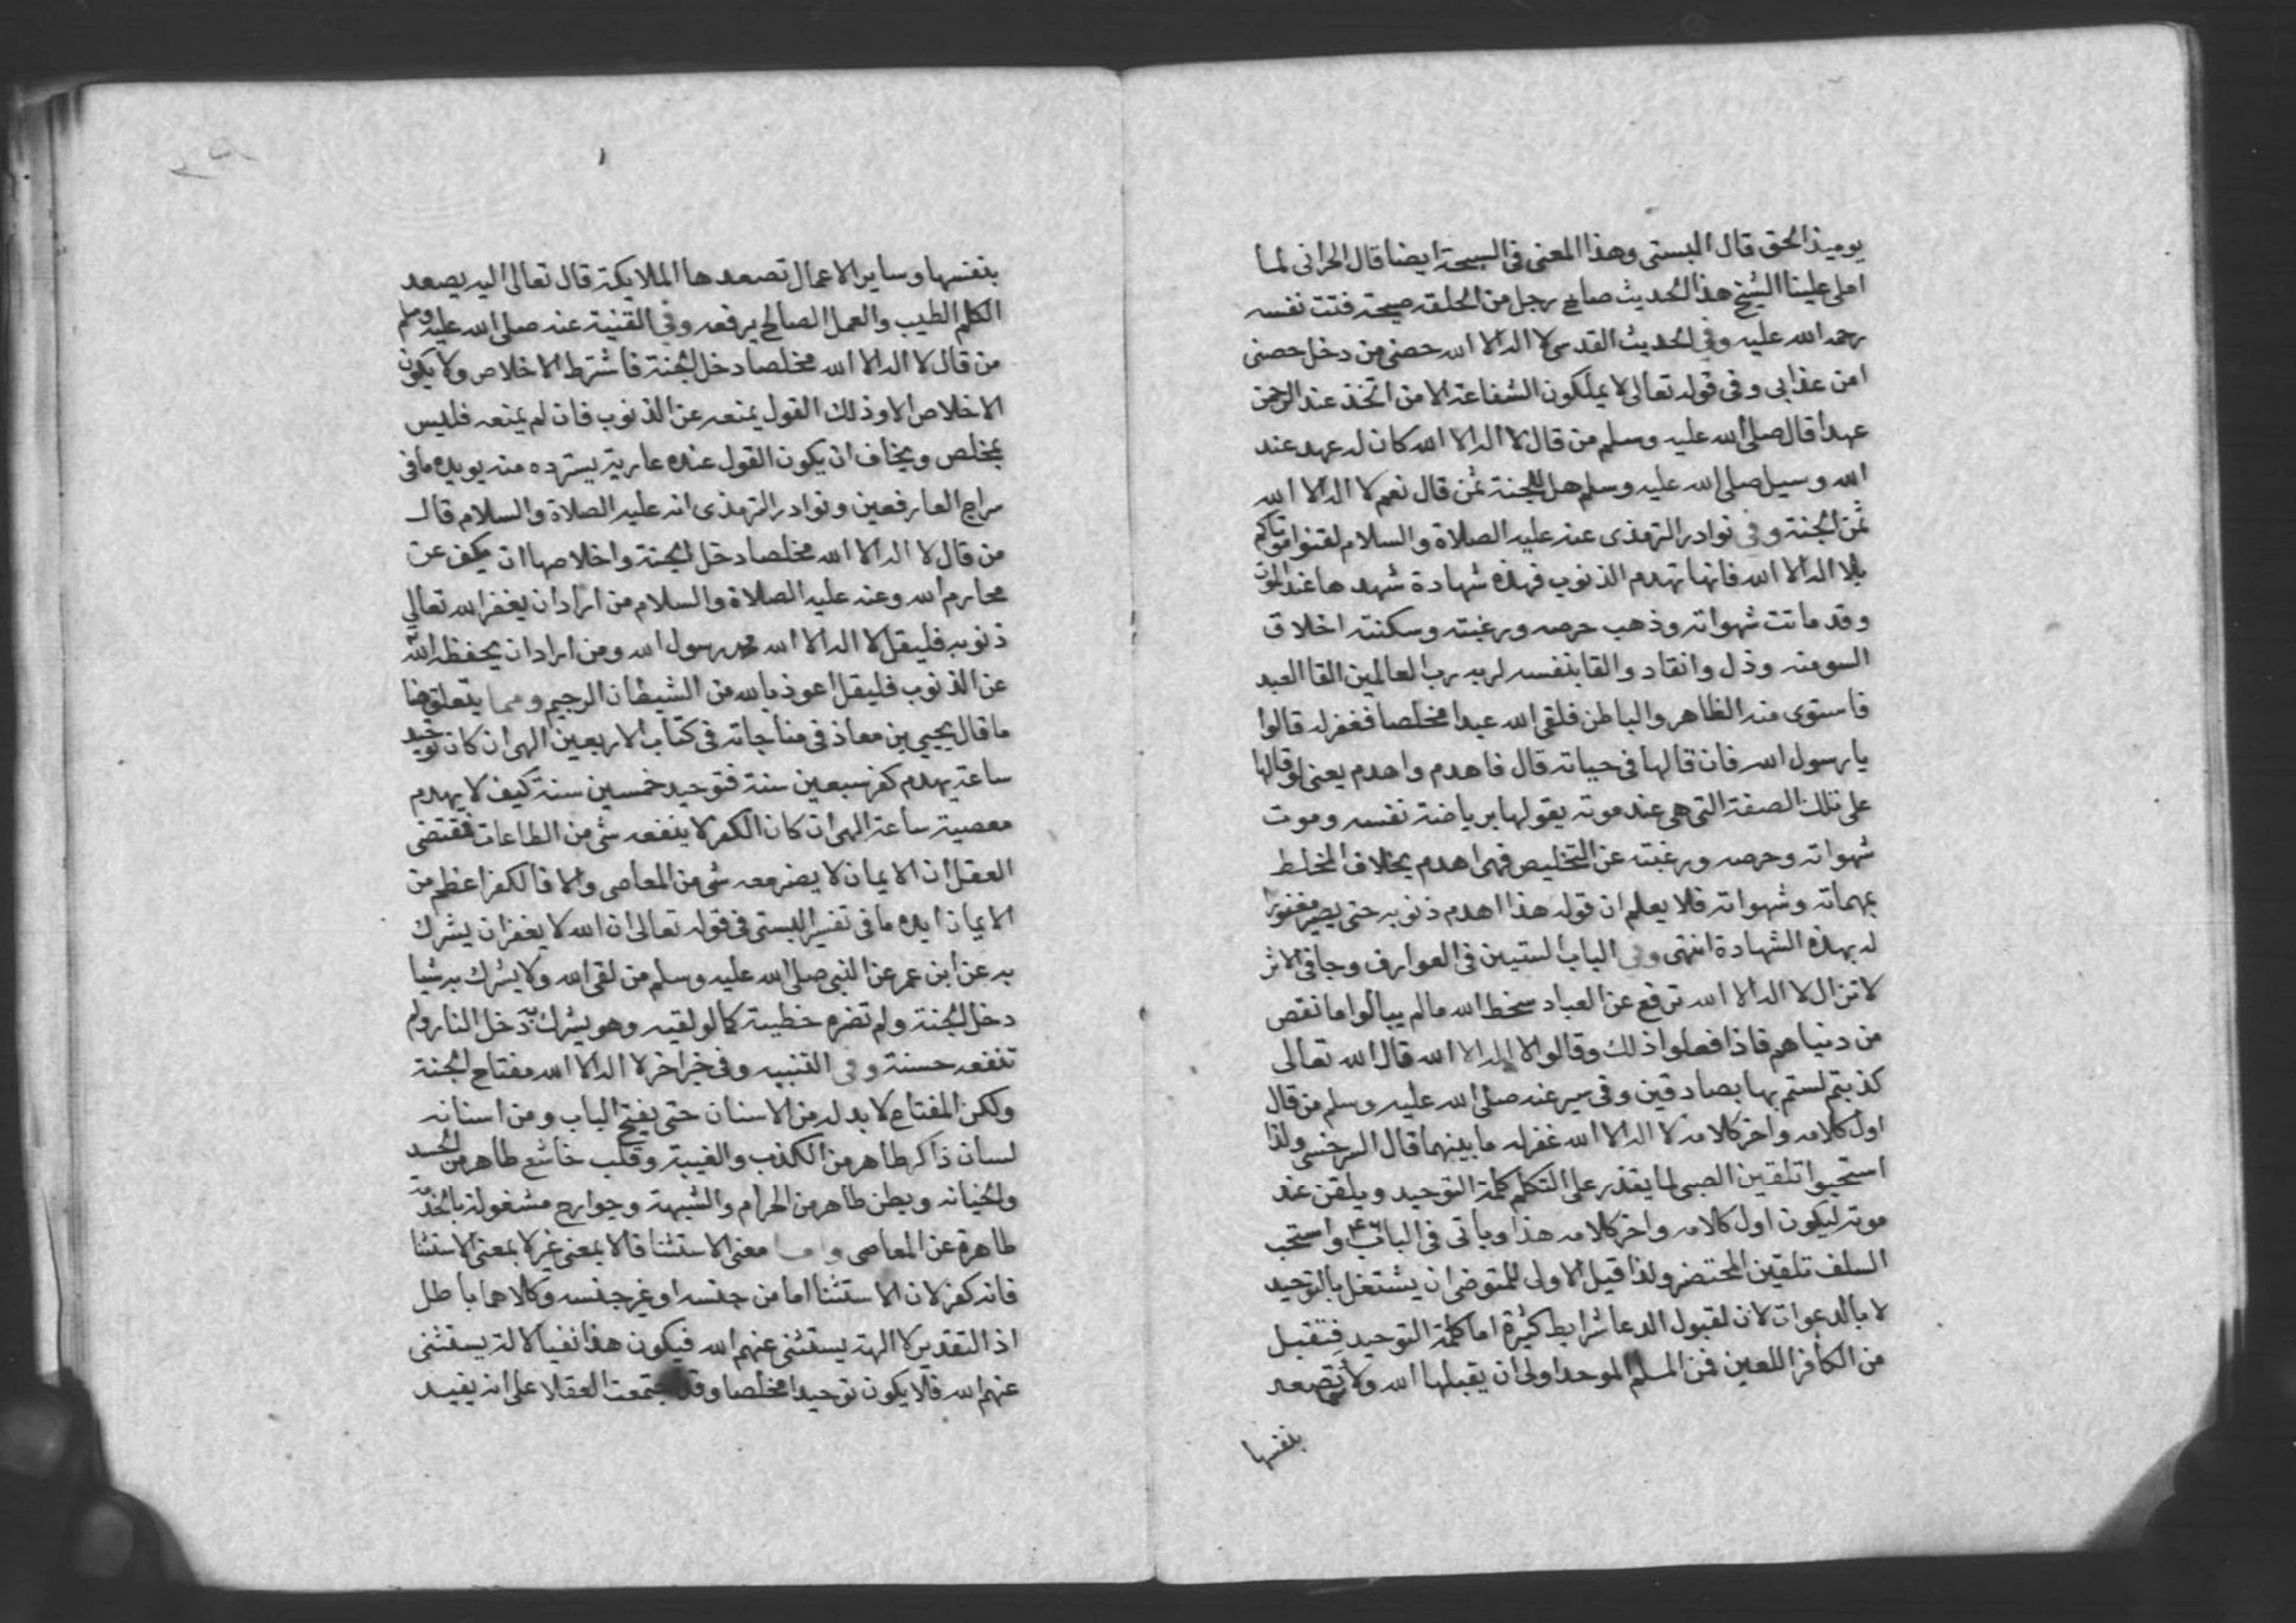 يوميذ الحق قال البستى وهذا المعنى فى السبحة ايضا قال الحرانى لما
املى علينا الشيخ هذا الحديث صاح رجل من الحلقه صيحة فتت نفسه
رحمه الله عليه وفى الحديث القدسى لا اله الا الله حصنى من دخل حصنى
امن عذابى وفى قوله تعالى لا يملكون الشفاعة الا من اتخذ عند الرحمن
عهدا قال صلى الله عليه وسلم من قال لا اله الا الله كان له عهد عند
الله وسيل صلى الله عليه وسلم هل للجنة ثمن قال نعم لا اله الا الله
ثمن الجنة وفى نوادر الترمذى عنه عليه الصلاة والسلام لقنوا موتاكم
بلا اله الا الله فانها تهدم الذنوب فهذه شهادة شهد ها عند الموت
وقد ماتت شهواته وذهب حرصه ورغبته وسكنته اخلاق
السو منه وذل وانقاد والقا بنفسه لربه رب العالمين القا العبد
فاستوى منه الظاهر والباطن فلقى الله عبدا مخلصا فغفر له قالوا
يا رسول الله فان قالها فى حياته قال فاهدم واهدم يعنى لو قالها
على تلك الصفة التى هى عند موته يقولها برياضة نفسه وموت
شهواته وحرصه ورغبته عن التخليص فهى اهدم بخلاف المخلط
بهماته وشهواته فلا يعلم ان قوله هذا اهدم ذنوبه حتى يصير مغفورا
له بهذه الشهادة انتهى وفى الباب الستين فى العوارف وجا فى الاثر
لا تزال لا اله الا الله ترفع عن العباد سخط الله ما لم يبالوا ما نقص
من دنياهم فاذا فعلوا ذلك وقالوا لا اله الا الله قال الله تعالى
كذبتم لستم بها بصادقين وفى سير عنه صلى الله عليه وسلم من قال
اول كلامه واخر كلامه لا اله الا الله غفر له ما بينهما قال السرخسى ولذا
استحبوا تلقين الصبى لما يقدر على التكلم كلمة التوحيد ويلقن عند
موته ليكون اول كلامه واخر كلامه هذا وياتى فى الباب ٤٦ واستحب
السلف تلقين المحتضر ولذا قيل الاولى للمتوضى ان يشتغل بالتوحيد
لا بالدعوات لان لقبول الدعا شرايط كثيرة اما كلمة التوحيد فتقبل
من الكافر اللعين فمن المسلم الموحد اولى ان يقبلها الله ولا تصعد
بنفسها
بنفسها وساير الاعمال تصعد ها الملايكة قال تعالى اليه يصعد
الكلم الطيب والعمل الصالح يرفعه وفى القنية عنه صلى الله عليه وسلم
من قال لا اله الا الله مخلصا دخل الجنة فاشترط الاخلاص ولا يكون
الاخلاص الا وذلك القول يمنعه عن الذنوب فان لم يمنعه فليس
بمخلص ويخاف ان يكون القول عنده عارية يسترده منه يويده ما فى
سراج العارفعين ونوادر الترمذى انه عليه الصلاة والسلام قال
من قال لا اله الا الله مخلصا دخل الجنة واخلاصها ان يكف عن
محارم الله وعنه عليه الصلاة والسلام من اراد ان يغفر الله تعالى
ذنوبه فليقل لا اله الا الله محمد رسول الله ومن اراد ان يحفظه الله
عن الذنوب فليقل اعوذ بالله من الشيطان الرجيم ومما يتعلق هنا
ما قال يحيى بن معاذ فى مناجاته فى كتاب الاربعين الهى ان كان توحيد
ساعة يهدم كفر سبعين سنة فتوحيد خمسين سنة كيف لا يهدم
معصية ساعة الهى ان كان الكفر لا ينفعه شى من الطاعات فمقتضى
العقل ان الايمان لا يضر معه شى من المعاصى والا فالكفر اعظم من
الايمان ايده ما فى تفسير البستى فى قوله تعالى ان الله لا يغفر ان يشرك
به عن ابن عمر عن النبى صلى الله عليه وسلم من لقى الله ولا يشرك به شيا
دخل الجنة ولم تضره خطيية كما لو لقيه وهو يشرك به دخل النار ولم
تنفعه حسنة وفى التنبيه وفى خبر اخر لا اله الا الله مفتاح الجنة
ولكن المفتاح لا بد له من الاسنان حتى يفتح الباب ومن اسنانه
لسان ذاكر طاهر من الكذب والغيبة وقلب خاشع طاهر من الحسد
والخيانه وبطن طاهر من الحرام والشبهة وجوارح مشغولة بالخدمة
طاهرة عن المعاصى واما معنى الاستثنا فالا بمعنى غير لا بمعنى الاستثنا
فانه كفر لان الاستثنا اما من جنسه او غير جنسه وكلاهما باطل
اذ التقدير لا الهة يستثنى عنهم الله فيكون هذا نفيا لالة يستثنى
عنهم الله فلا يكون توحيدا مخلصا وقد اجتمعت العقلا على انه يفيد